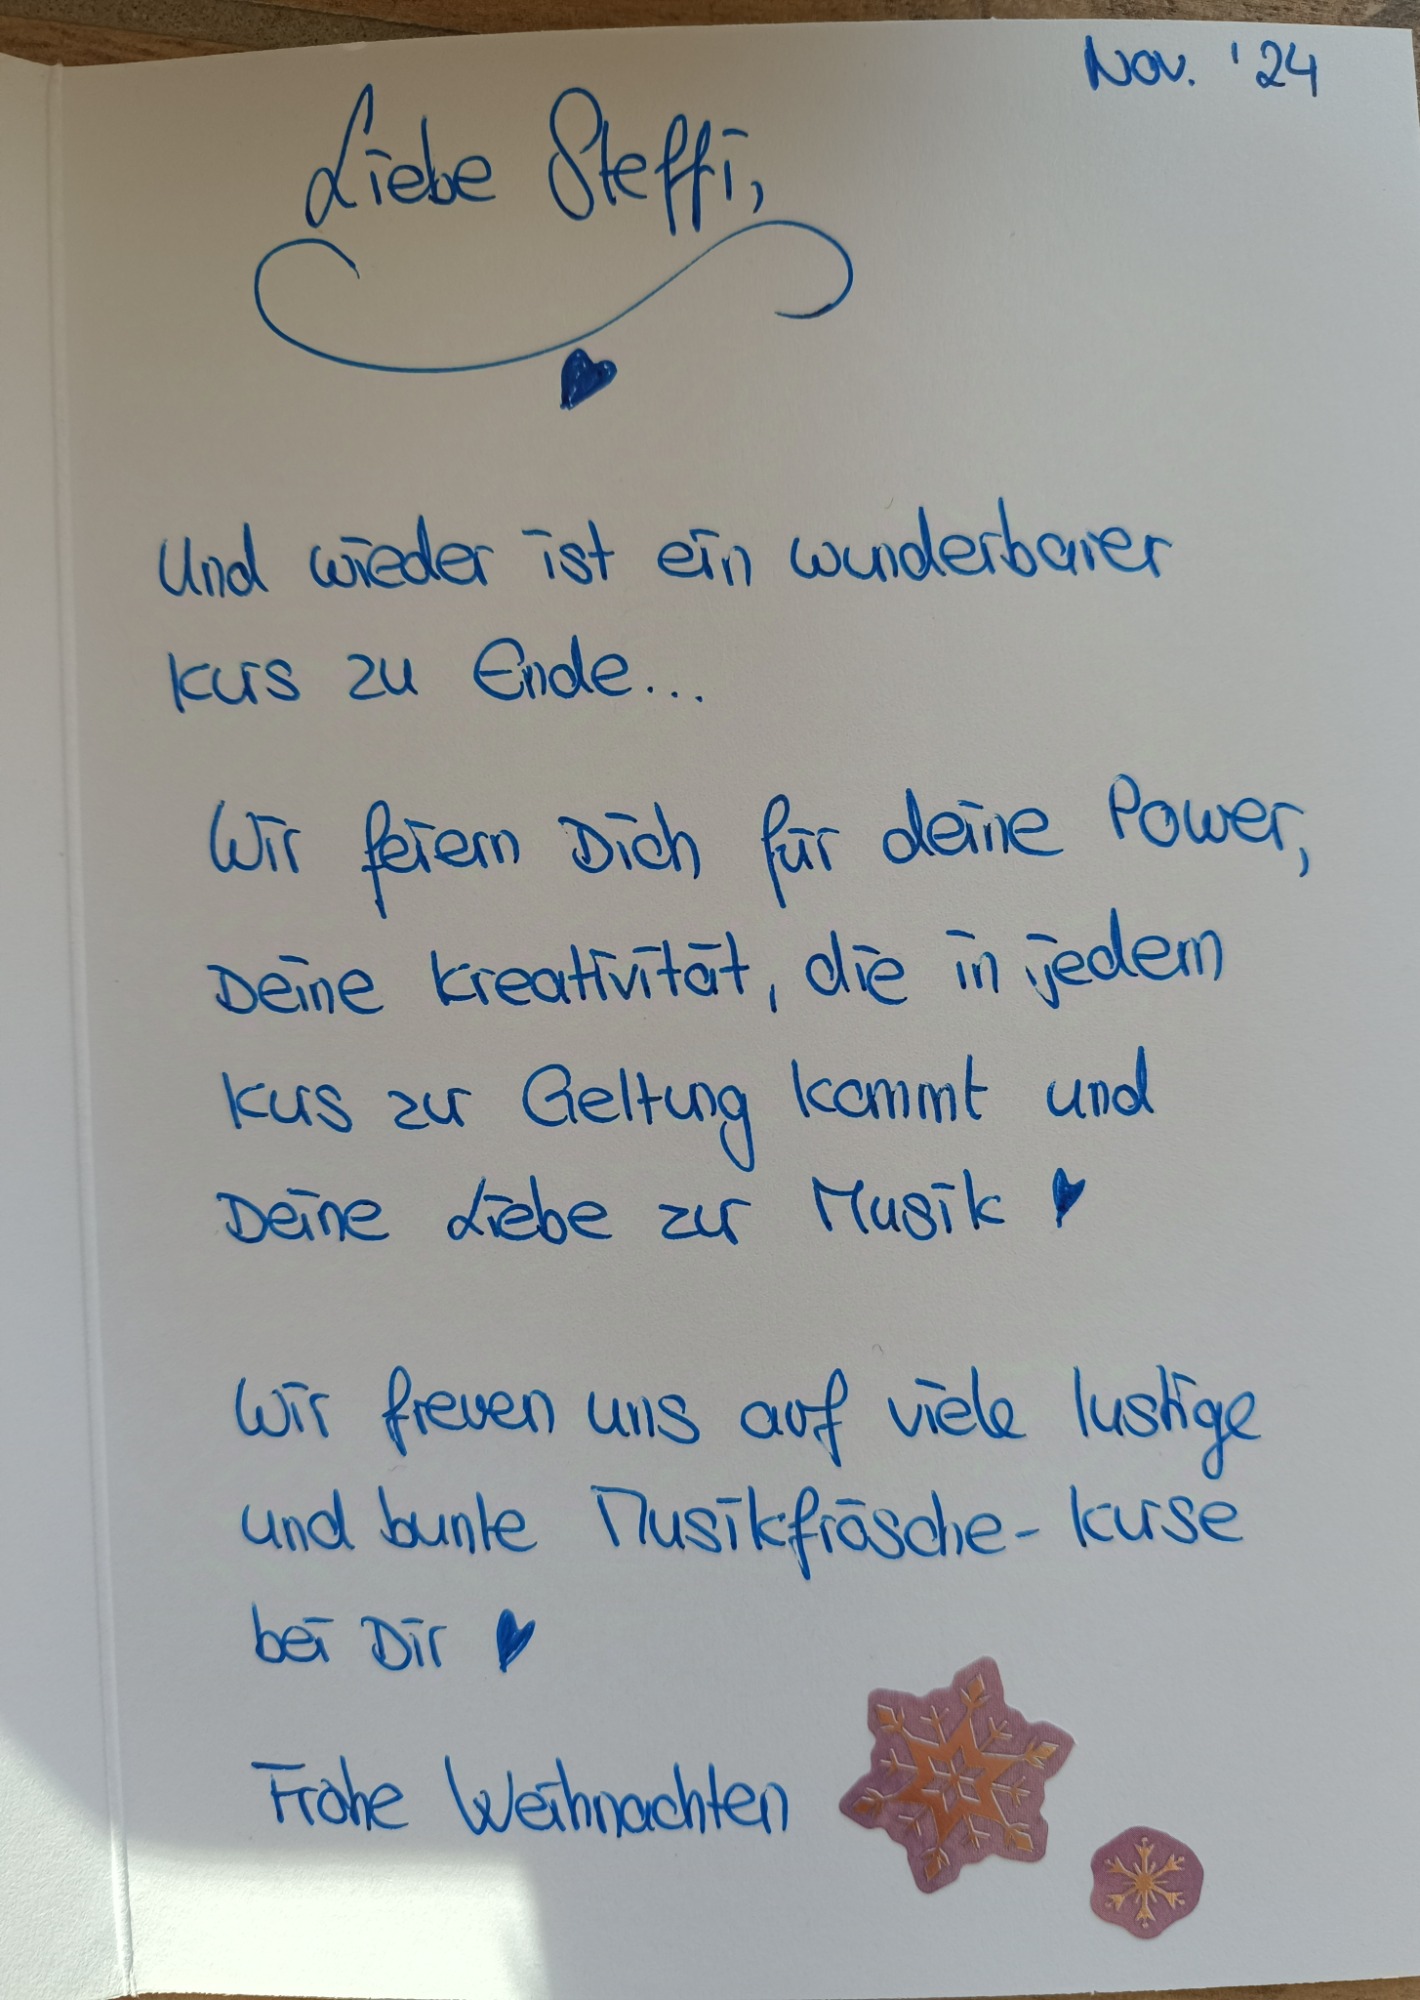 Nov. '24
Liebe Steffi,
Und wieder ist ein wunderbarer
Kurs zu Ende...
Wir feiern Dich für deine Power,
Deine Kreativität, die in jedem
Kurs zur Geltung kommt und
Deine Liebe zur Musik ♥
Wir freuen uns auf viele lustige
und bunte Musikfrösche-Kurse
bei Dir ♥
Frohe Weihnachten